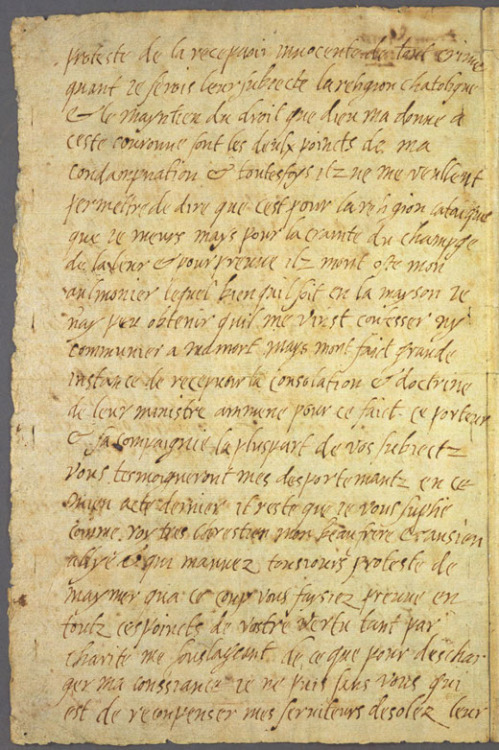 proteste de la recepvoir innocente de tout crime
quant je serois leur subiecte la religion chatolique
& le mayntien du droit que dieu ma donne a
ceste couronne sont les deulx poincts de ma
condampnation & toutesfoys ilz ne me veullent
permettre de dire que cest pour la religion catolique
que je meurs mays pour la crainte du champge
de la leur & pour preuve ilz mont oste mon
aulmonier lequel bien quil soit en la mayson je
nay peu obtenir quil me vinst confesser ny
communier a ma mort mays mont faict grande
instance de recepvoir la consolation & doctrine
de leur ministre ammene pour ce faict. ce porteur
& sa compaignie la pluspart de vos subiectz
vous tesmoigneront mes desportemantz en ce
mien acte dernier il reste que je vous suplie
comme roy tres chrestien mon beaufrere & ansien
allye & qui mauvez tousiours proteste de
maymer qua ce coup vous faysiez preuve en
toutz ces poincts de vostre vertu tant par
charite me soulageant de ce que pour deschar
ger ma conssiance je ne puis sans vous qui
est de recompenser mes serviteurs desolez leur